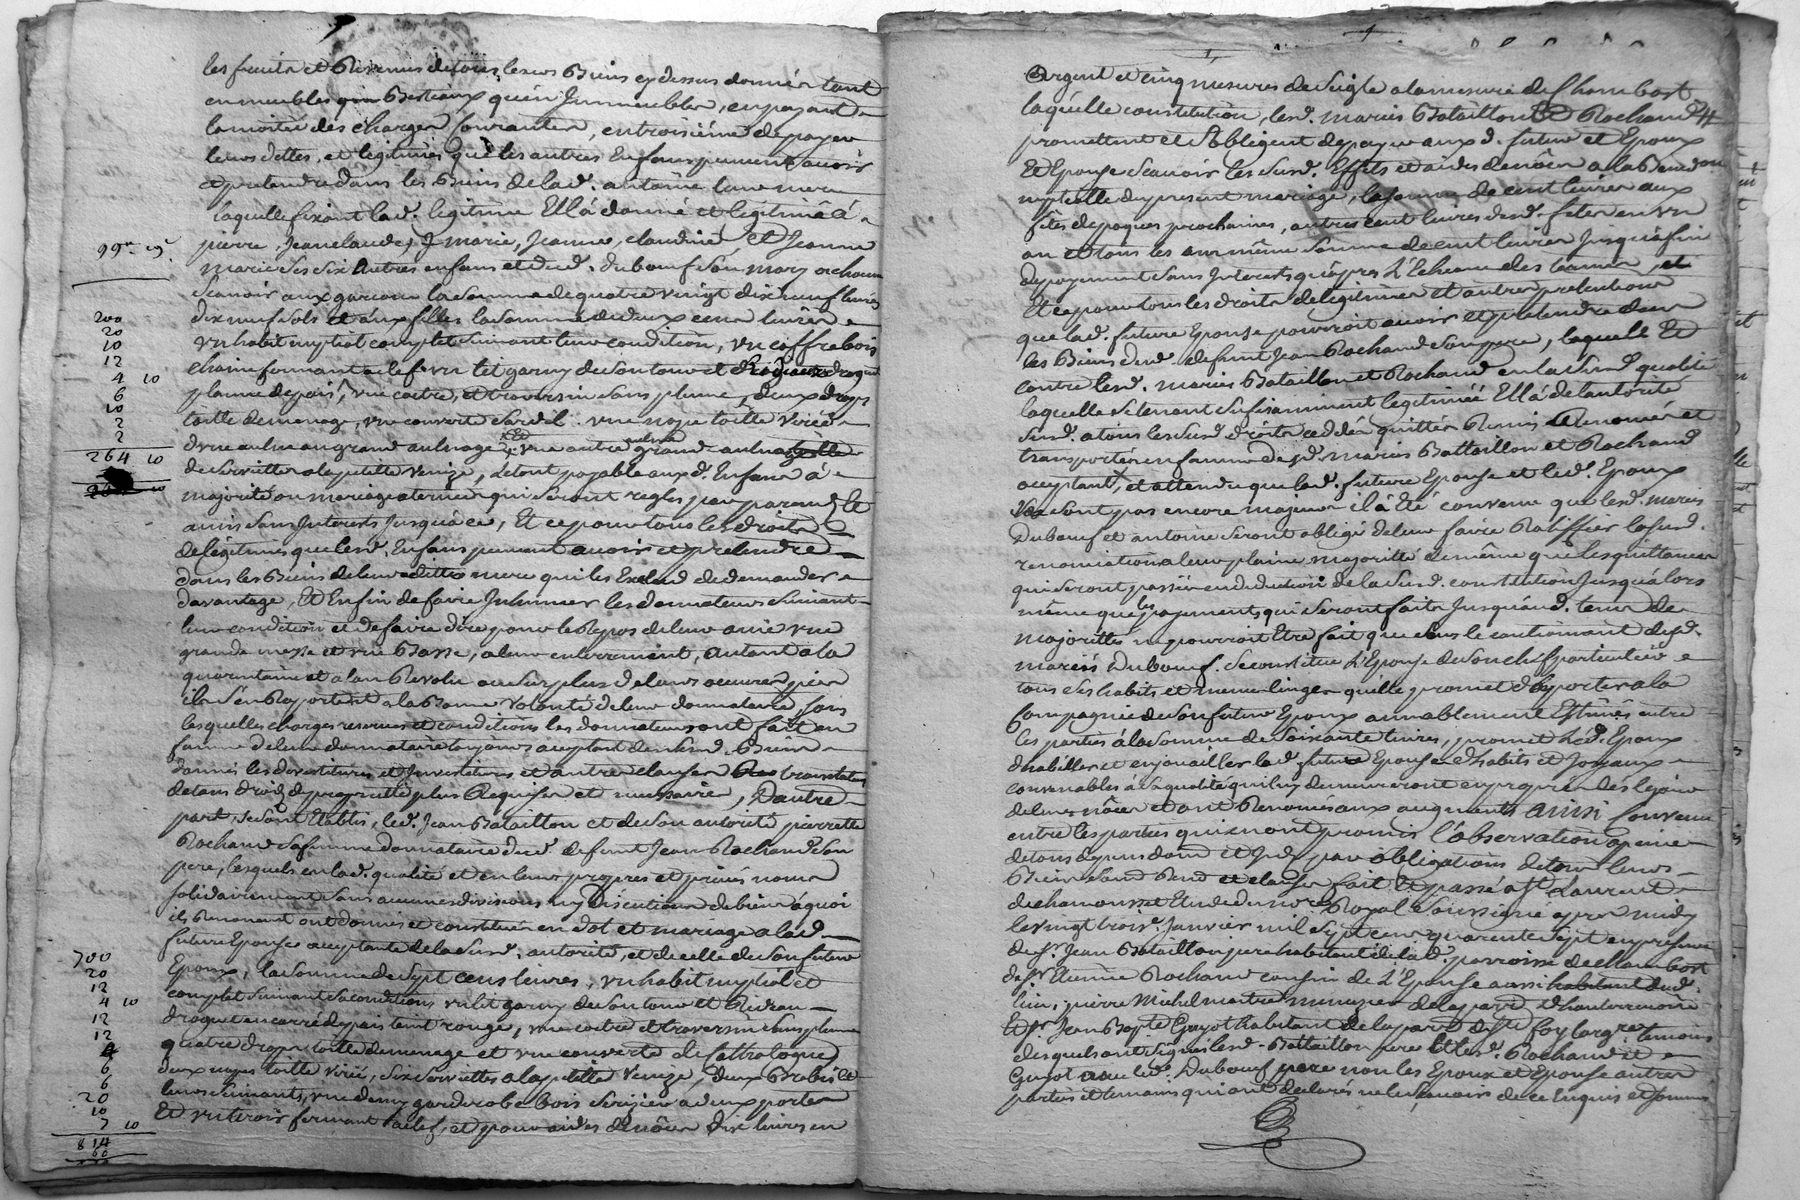 les fruits et Revenus de tous lesurs Biens cy dessus donnés tant
en meubles Bestiaux qu'en Immeubles, en payant
la moitié des charges Courantes, en troisième de payer
leurs dettes, et legitimes que les autres Enfans peuvent avoir
et pretendre dans les Biens de lad. antoine leur mere
laquelle fixant lad. legitime Ell'a donné et legitimé à
99# 19s
pierre, Jeanclaude, J. marie, Jeanne, claudine et Jeanne
marie ses six autres enfans et dud. duboeuf son mary a chacun
Scavoir aux garçons la somme de quatre vingt dix neuf livres
200
dix neuf sols et aux filles la somme de deux cens livres
20
un habit nuptial complet suivant leur condition, un coffre bois
10
12
chaine fermant a clef un lit garny de son tour et drogue
4 10
plaine de pois, une coitre, et traversin sans plume, deux draps
6
10
toille de menage, une couverte , une nape toille virée
2
2
d'une aulne au grand aulnage
264 10
de serviettes a la petitte venize, le tout payable auxd. Enfans à
majorité ou mariage a termes qui seront reglés par parens et
amis sans Interests jusqu'a ce, Et ce pour tous les droits
de legitimes que lesd. Enfans peuvent avoir et pretendre
dans les Biens de leur ditte mere qui les Exclud de demander
davantage, Et Enfin de faire Inhumer les donnateurs suivant
leur condition et de faire dire pour le Repos de leur ame une
grande messe et une Basse, a leur enterrement, autant a la
quarantaine et a l'an Revolu au surplus de leurs oeuvres pies
ils s'en Raportent a la Bonne volonté de leur donnataire, sous
lesquelles charges reserves et conditions les donnateurs ont fait en
faveur de leur donnataire toujours acceptant des susd. Biens
donnés les devestitures et Investitures et autres clauses translatives
de tous droits de proprietté plus Requises et necessaires, D'autre
part, se sont Etablis, led. Jean Bataillon et de son autorité pierrette
Rochand sa femme donnataire dud. defunt Jean Rochand son
pere, lesquels en lad. qualité et en leurs propres et privés noms
solidairement sans aucunes divisions ny discutions de biens a quoi
ils Renoncent ont donnés et constitués en dot et mariage a lad.
future Epouse acceptante de la susd. autorité, et de celle de son futur
700
Epoux, la somme de sept cens livres, un habit nuptial et
20
complet suivant sa condition un lit garny de son tour et Rideau
12
4 10
droguet encarré de pais teint rouge, une coitre et traversin sans plume
12
12
quatre draps toille de menage et une couverte de Cathalogne
6
deux napes toille virée, six serviettes a la petitte venize, deux Brebis et
6
leurs suivants, une demy garderobe bois serisier a deux portes
20
10
Et un tiroir fermant a clef, et pour aides de nôces dix livres en
7 10
814
60
argent et cinq mesures de seigle a la mesure de Chambost
laquelle constitution, lesd. mariés Bataillon et Rochand
promettent et s'obligent de payer auxd. futurs et Epoux
Et Epouse scavoir les susd. Effets et aides de nôces a la Bened.on
nuptialle du present mariage, la somme de cent livres aux
fêtes de paques prochaines, autres cent livres desd. fêtes en un
an et tous les ans même somme de cent livres jusqu'a fin
de payement sans Interests qu'apres l'Echeance des termes, et
Et ce pour tous les droits de legitimes et autres pretentions
que lad. future Epouse pourroit avoir et pretendre dans
les Biens dud. defunt Jean Rochand son pere, laquelle Et
contre lesd. mariés Bataillon et Rochand en la susd. qualité
laquelle se tenant sufisamment legitimée Ell'a de l'autorité
susd. a tous les susd. droits ceddés quittés Remis Renoncé et
transportés en faveur desd. mariés Bataillon et Rochand
acceptant, et attendu que lad. future Epouse et led. Epoux
ne sont pas encore majeurs il a Eté convenu que lesd. mariés
Duboeuf et antoine seront obligé de leur faire Ratiffier la susd.
renonciation a leur plaine majoritté de même que les quittances
qui seront passées en deduction de la susd. constitution jusqu'alors
même que les payements, qui seront faits jusqu'aud. tems de
majorittés ne pourront Etre fait que sous le cautionnement desd.
mariés Duboeuf. se constitue l'Epouse de son chef particulier
tous ses habits et menus linges quelle promet d'aporter a la
Compagnie de son futur Epoux amiablement Estimés entre
les parties à la somme de soixante livres, promet led. Epoux
d'habiller et enjouailler lad. future Epouse d'habits et joyaux
convenables a sa qualité qui luy demeureront en propre des le jour
de leurs nôces et ont Renoncés aux augments ainsi Convenu
entre les parties qui en ont promis l'observation a peine
de tous depens dom et Int par obligations de tous leurs
Biens soum Renon et clauses fait Et passé a St Laurent
de chamousset Etude du nore Royal soussigné apres midy
le vingt trois Janvier mil sept cens quarente sept en presence
de sr. Jean Bataillon pere habitant de lad. parroisse de chambost
de sr Etienne Rochand cousin de l'Epouse aussi habitant dud.
lieu, pierre Michel maitre menuzier de la parsse d'hauterivoire
Et sr Jean Bapte Guyot habitant de la parsse de ste foy l'argre temoins
desquels ont signés lesd. Bataillon pere et led. Rochand et
Guyot avec led. Duboeuf pere non les Epoux et Epouse autres
parties et temoins qui ont declarés ne le scavoir de ce Enquis et sommés